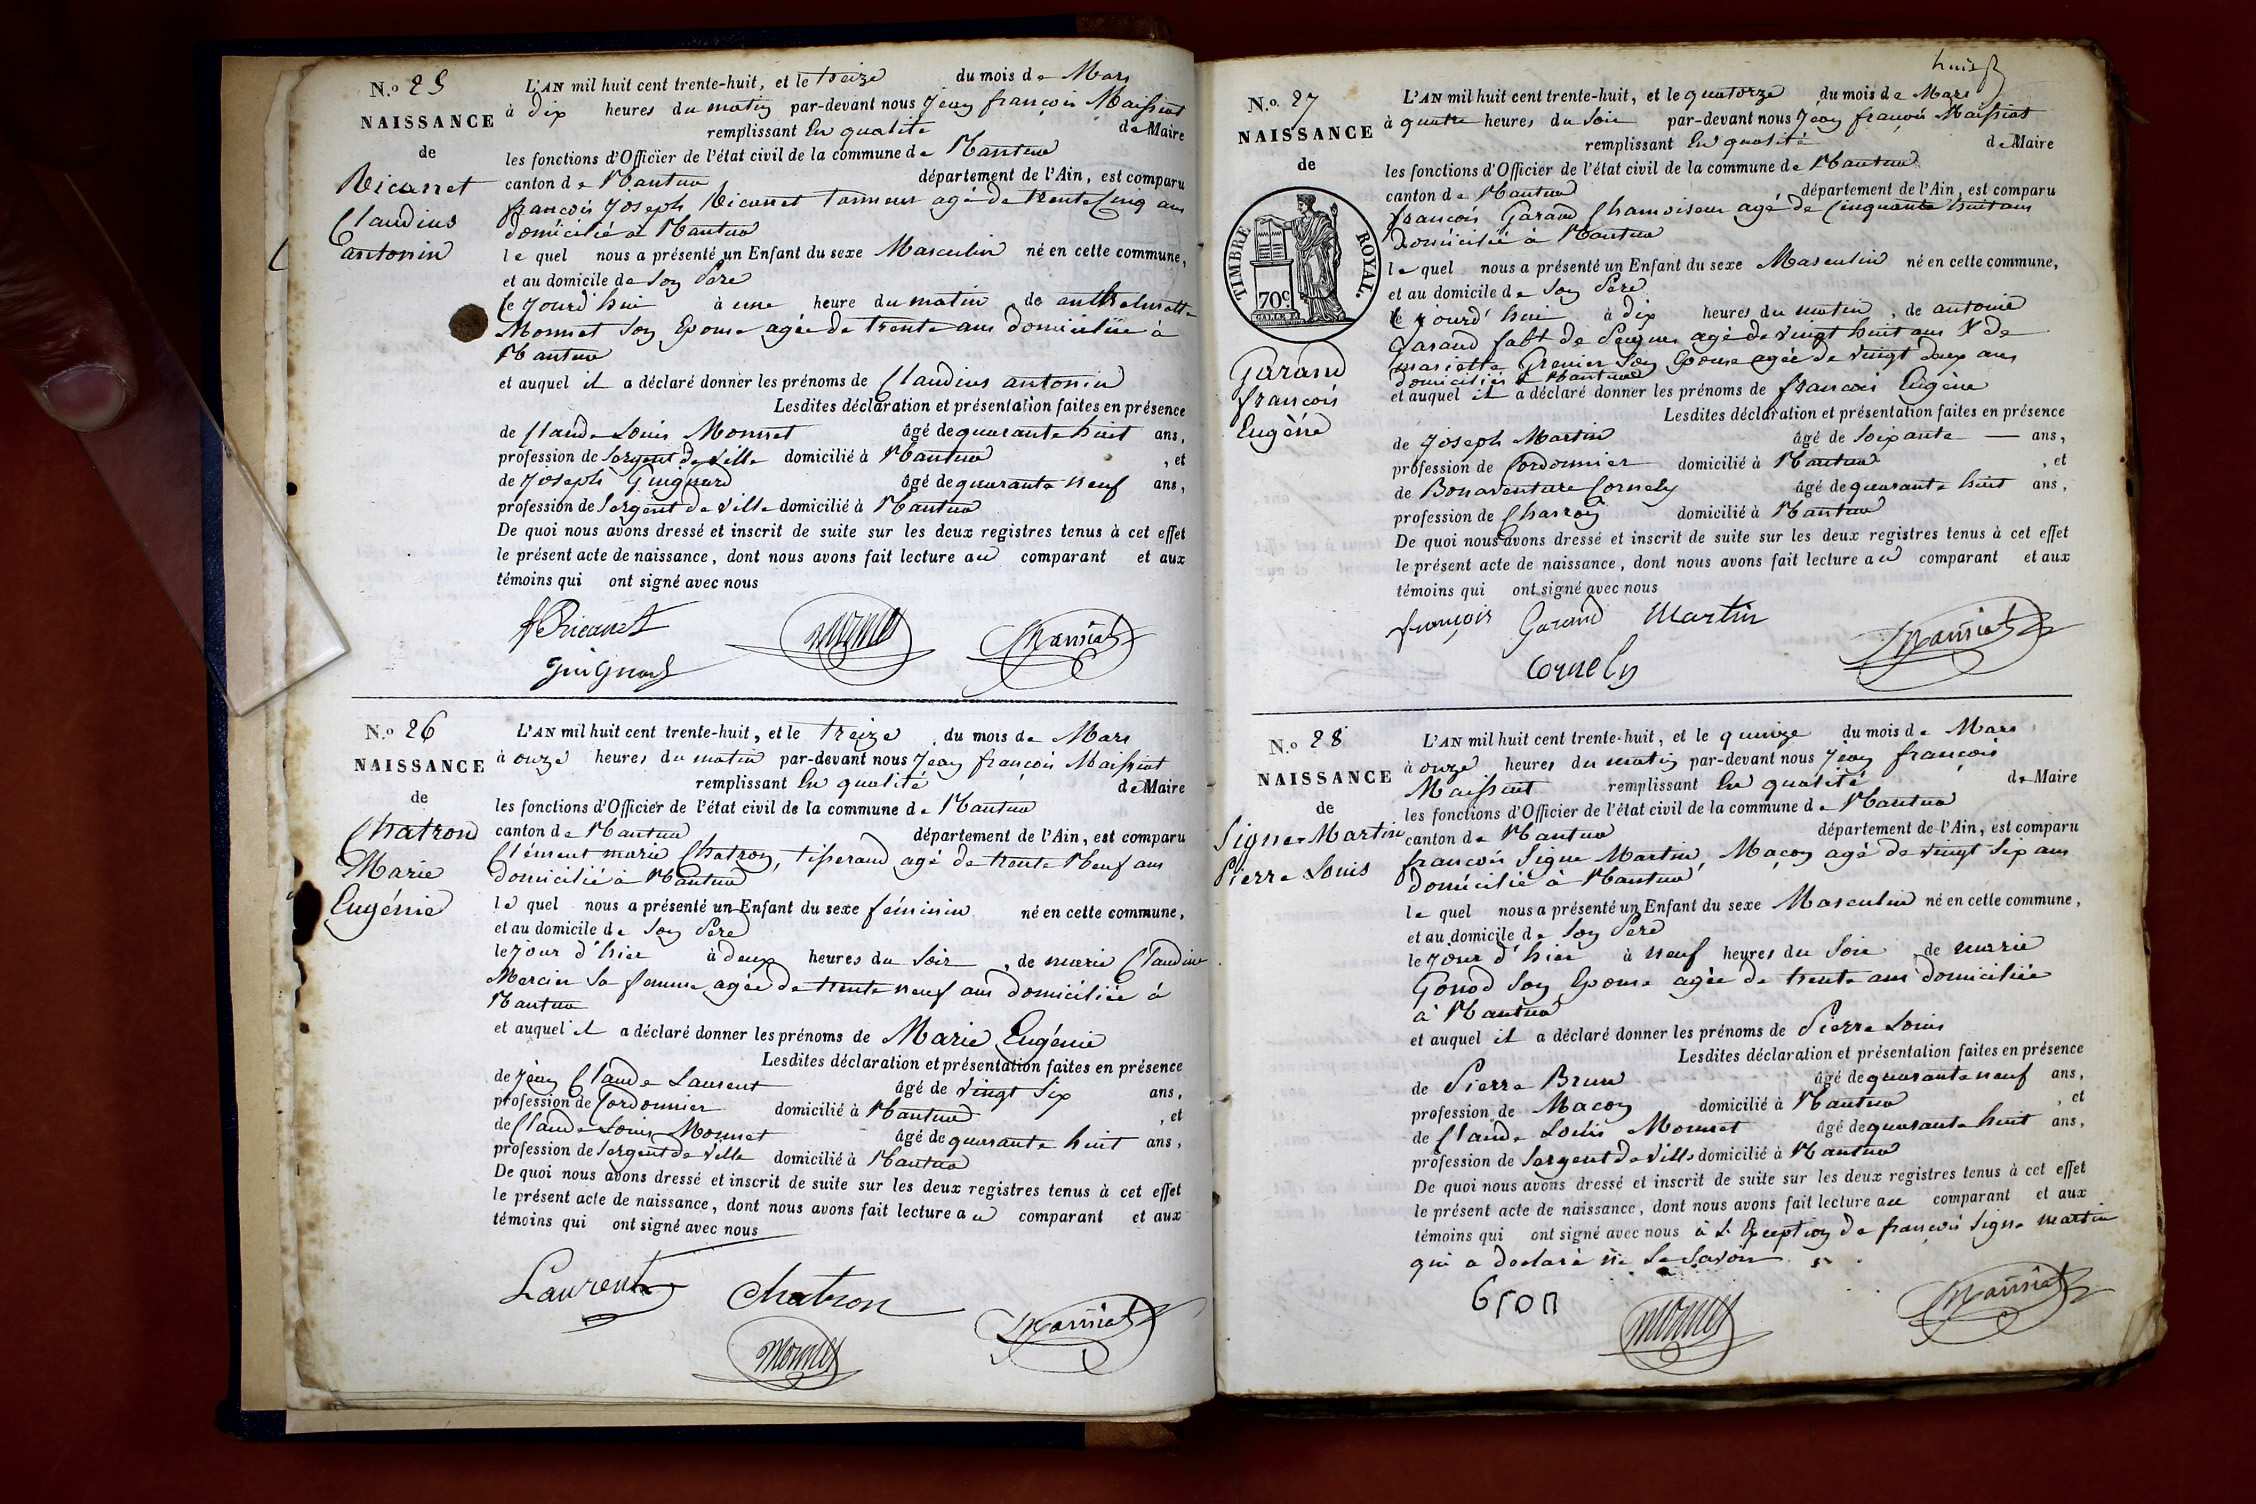 N.º 25
NAISSANCE
de
Ricanet
Claudius
antonin
L'AN mil huit cent trente-huit, et le treize du mois de Mars
à dix heures du matin par-devant nous Jean françois Maissiat
remplissant En qualité de Maire
les fonctions d'Officier de l'état civil de la commune de Nantua
canton de Nantua département de l'Ain, est comparu
françois Joseph Ricanet tanneur agé de trente Cinq ans
domicilié à Nantua
le quel nous a présenté un Enfant du sexe Masculin né en cette commune,
et au domicile de son Père
le jourd'hui à une heure du matin de anthelmette
Monnet Son Epouse agée de trente ans domiciliée à
Nantua
et auquel il a déclaré donner les prénoms de Claudius antonin
Lesdites déclaration et présentation faites en présence
de Claude Louis Monnet âgé de quarante huit ans,
profession de Sergent de Ville domicilié à Nantua , et
de Joseph Guignard âgé de quarante neuf ans,
profession de Sergent de Ville domicilié à Nantua
De quoi nous avons dressé et inscrit de suite sur les deux registres tenus à cet effet
le présent acte de naissance, dont nous avons fait lecture au comparant et aux
témoins qui ont signé avec nous
Ricanet Monnet Maissiat
Guignard
N.º 26
NAISSANCE
de
Chatron
Marie
Eugénie
L'AN mil huit cent trente-huit, et le treize du mois de Mars
à onze heures du matin par-devant nous Jean françois Maissiat
remplissant En qualité de Maire
les fonctions d'Officier de l'état civil de la commune de Nantua
canton de Nantua département de l'Ain, est comparu
Clément marie Chatron, tisserand agé de trente Neuf ans
domicilié à Nantua
le quel nous a présenté un Enfant du sexe féminin né en cette commune,
et au domicile de Son Père
le jour d'hier à deux heures du Soir, de marie Claudine
Mercier Sa femme agée de trente neuf ans domiciliée à
Nantua
et auquel il a déclaré donner les prénoms de Marie Eugénie
Lesdites déclaration et présentation faites en présence
de Jean Claude Laurent âgé de vingt Six ans,
profession de Cordonnier domicilié à Nantua , et
de Claude Louis Monnet âgé de quarante huit ans,
profession de Sergent de Ville domicilié à Nantua
De quoi nous avons dressé et inscrit de suite sur les deux registres tenus à cet effet
le présent acte de naissance, dont nous avons fait lecture au comparant et aux
témoins qui ont signé avec nous
Laurent Chatron Maissiat
Monnet
huit
N.º 27
NAISSANCE
de
TIMBRE ROYAL.
70c
Garand
françois
Eugène
L'AN mil huit cent trente-huit, et le quatorze du mois de Mars
à quatre heures du Soir par-devant nous Jean françois Maissiat
remplissant En qualité de Maire
les fonctions d'Officier de l'état civil de la commune de Nantua
canton de Nantua , département de l'Ain, est comparu
françois Garand Chamoiseur agé de Cinquante huit ans
domicilié à Nantua
le quel nous a présenté un Enfant du sexe Masculin né en cette commune,
et au domicile de Son Père
le jourd'hui à dix heures du matin, de antoine
Garand fabt de Peignes agé de vingt huit ans & de
mariette Grenier Son Epouse agée de vingt deux ans
domiciliés à Nantua
et auquel il a déclaré donner les prénoms de françois Eugène
Lesdites déclaration et présentation faites en présence
de Joseph Martin âgé de soixante — ans,
profession de Cordonnier domicilié à Nantua , et
de Bonaventure Cornely âgé de quarante huit ans,
profession de Charron domicilié à Nantua
De quoi nous avons dressé et inscrit de suite sur les deux registres tenus à cet effet
le présent acte de naissance, dont nous avons fait lecture au comparant et aux
témoins qui ont signé avec nous
françois Garand Martin Maissiat
Cornely
N.º 28
NAISSANCE
de
Signe Martin
Pierre Louis
L'AN mil huit cent trente-huit, et le quinze du mois de Mars
à onze heures du matin par-devant nous Jean françois
Maissiat remplissant En qualité de Maire
les fonctions d'Officier de l'état civil de la commune de Nantua
canton de Nantua département de l'Ain, est comparu
françois Signe Martin, Maçon agé de vingt Six ans
domicilié à Nantua
le quel nous a présenté un Enfant du sexe Masculin né en cette commune,
et au domicile de Son Père
le jour d'hier à neuf heures du Soir de marie
Gonod Son Epouse agée de trente ans domiciliée
à Nantua
et auquel il a déclaré donner les prénoms de Pierre Louis
Lesdites déclaration et présentation faites en présence
de Pierre Brun âgé de quarante neuf ans,
profession de Maçon domicilié à Nantua , et
de Claude Louis Monnet âgé de quarante huit ans,
profession de Sergent de Ville domicilié à Nantua
De quoi nous avons dressé et inscrit de suite sur les deux registres tenus à cet effet
le présent acte de naissance, dont nous avons fait lecture au comparant et aux
témoins qui ont signé avec nous à l'Exception de françois Signe martin
qui a declaré ne le Savoir
Maissiat
Monnet